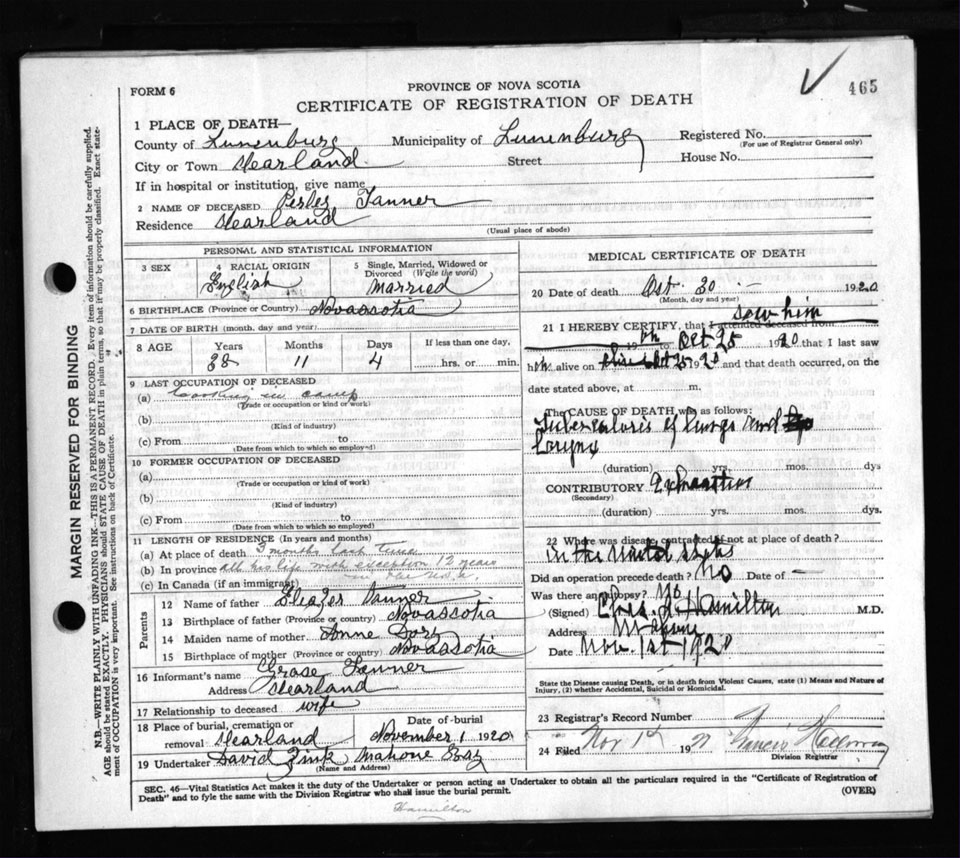 465
FORM 6
PROVINCE OF NOVA SCOTIA
CERTIFICATE OF REGISTRATION OF DEATH
1 PLACE OF DEATH—
County of Lunenburg Municipality of Lunenburg Registered No.
(For use of Registrar General only)
City or Town Stearland Street House No.
If in hospital or institution, give name
2 NAME OF DECEASED Perley Tanner
Residence Stearland
(Usual place of abode)
PERSONAL AND STATISTICAL INFORMATION
3 SEX 4 RACIAL ORIGIN 5 Single, Married, Widowed or Divorced (Write the word)
English Married
6 BIRTHPLACE (Province or Country) Novascotia
7 DATE OF BIRTH (month, day and year)
8 AGE Years Months Days If less than one day,
38 11 4 hrs. or min.
9 LAST OCCUPATION OF DECEASED
(a) Cooking in camp
(Trade or occupation or kind or work)
(b)
(Kind of industry)
(c) From to
(Date from which to which so employed)
10 FORMER OCCUPATION OF DECEASED
(a)
(Trade or occupation or kind of work)
(b)
(Kind of industry)
(c) From to
(Date from which to which so employed)
11 LENGTH OF RESIDENCE (In years and months)
(a) At place of death 3 months last time
(b) In province all his life with exception 12 years
in the U.S.A.
(c) In Canada (if an immigrant)
Parents
12 Name of father Eleazer Tanner
13 Birthplace of father (Province or country) Novascotia
14 Maiden name of mother Anne
15 Birthplace of mother (Province or country) Novascotia
16 Informant's name Grase Tanner
Address Stearland
17 Relationship to deceased wife
18 Place of burial, cremation or removal Stearland Date of burial November 1 1920
19 Undertaker David Zink Mahone Bay
(Name and Address)
MEDICAL CERTIFICATE OF DEATH
20 Date of death Oct 30 1920
(Month, day and year)
saw him
21 I HEREBY CERTIFY, that I attended deceased from
19 to Oct 25 1920 that I last saw
h alive on Oct 25 1920 and that death occurred, on
date stated above, at m.
The CAUSE OF DEATH was as follows:
Tuberculosis of lungs and
Larynx
(duration) yrs. mos. dys
CONTRIBUTORY Exhaustion
(Secondary)
(duration) yrs. mos. dys.
22 Where was disease contracted if not at place of death?
in the United States
Did an operation precede death? No Date of —
Was there an autopsy? No
(Signed) Chas. A Hamilton M.D.
Address Mahone
Date Nov. 1st 1920
State the Disease causing Death, or in death from Violent Causes, state (1) Means and Nature of Injury, (2) whether Accidental, Suicidal or Homicidal.
23 Registrar's Record Number
24 Filed Nov 1st 19 Francis
Division Registrar
SEC. 46—Vital Statistics Act makes it the duty of the Undertaker or person acting as Undertaker to obtain all the particulars required in the "Certificate of Registration of
Death" and to fyle the same with the Division Registrar who shall issue the burial permit. (OVER)
Hamilton
MARGIN RESERVED FOR BINDING
N.B.—WRITE PLAINLY WITH UNFADING INK—THIS IS A PERMANENT RECORD. Every item of information should be carefully supplied.
AGE should be stated EXACTLY. PHYSICIANS should STATE CAUSE OF DEATH in plain terms, so that it may be properly classified. Exact state-
ment of OCCUPATION is very important. See instructions on back of Certificate.